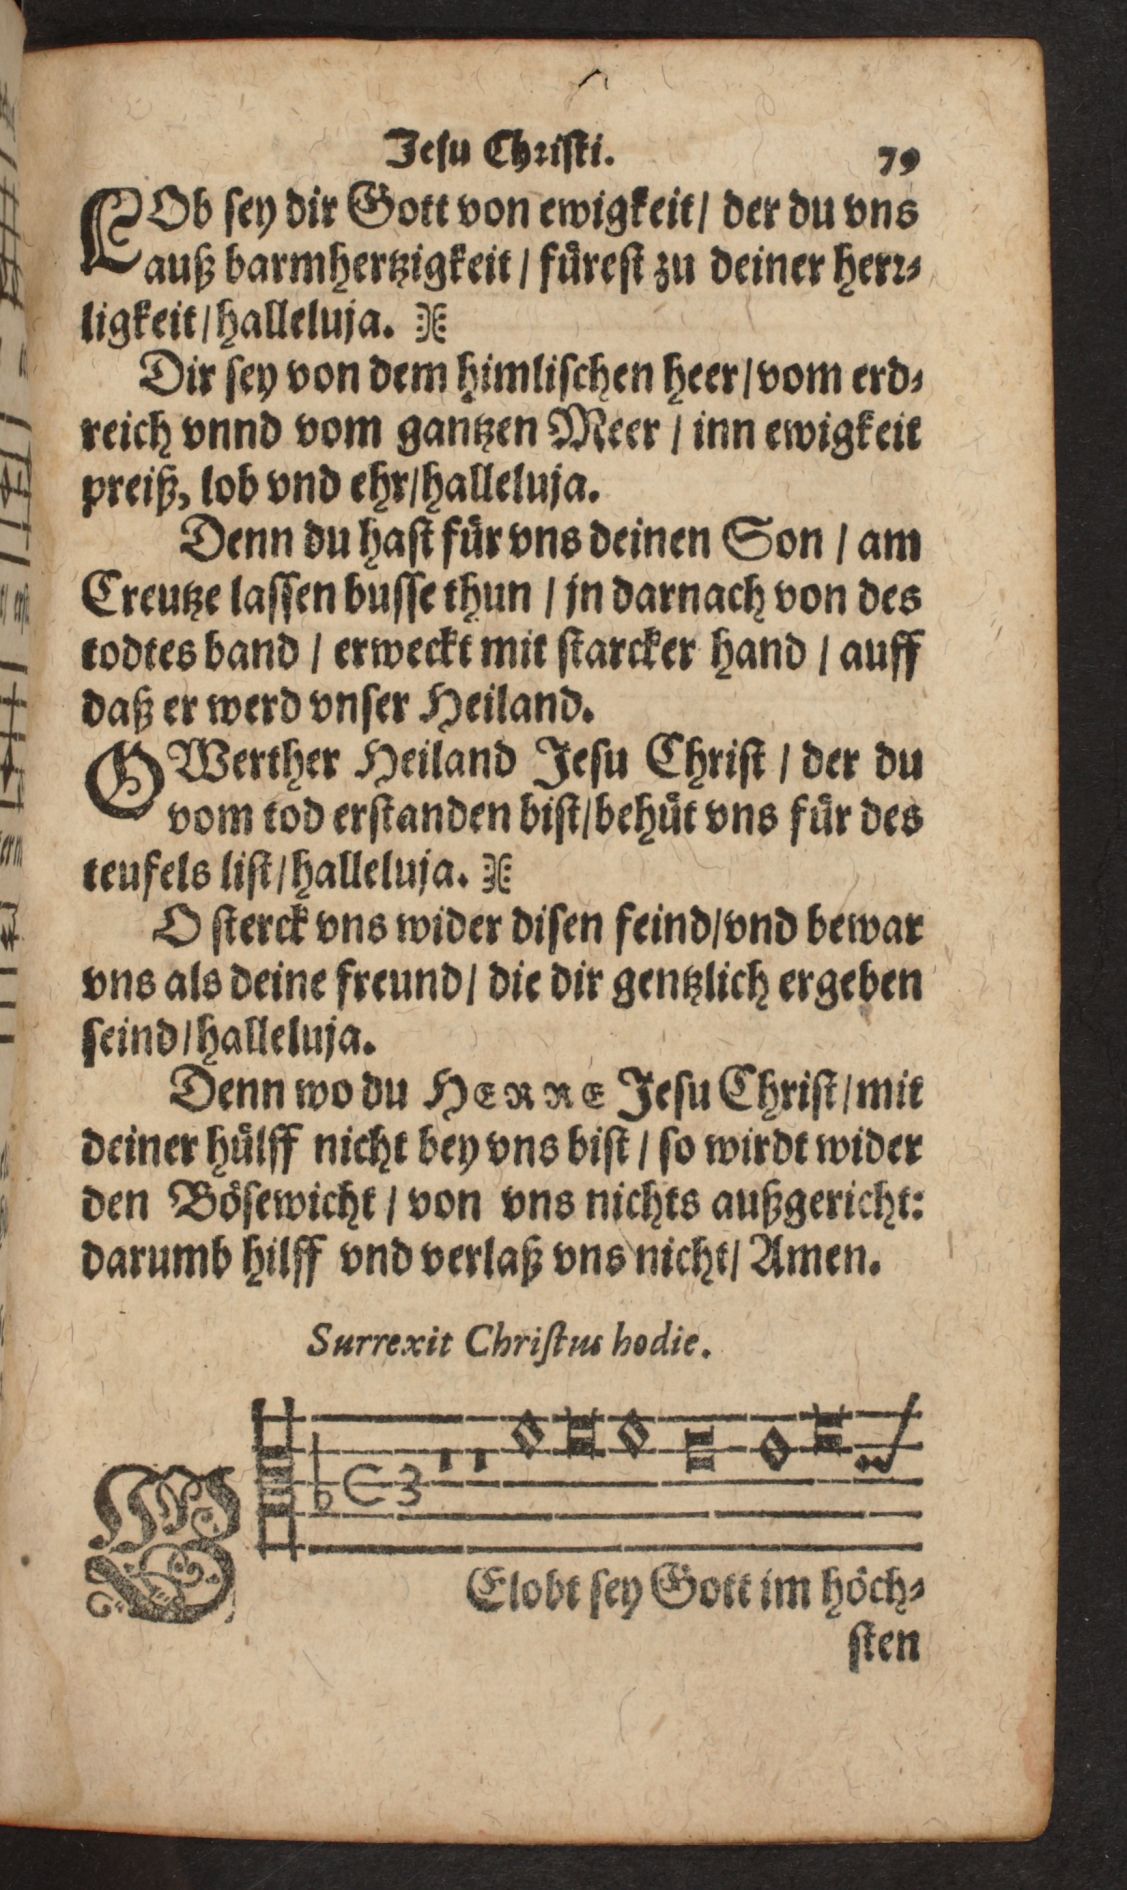 Jesu Christi. 79
LOb sey dir Gott von ewigkeit/ der du vns
auß barmhertzigkeit / fürest zu deiner herr⸗
ligkeit/halleluja.
Dir sey von dem himlischen heer/vom erd⸗
reich vnnd vom gantzen Meer / inn ewigkeit
preiß, lob vnd ehr/halleluja.
Denn du hast für vns deinen Son / am
Creutze lassen busse thun / jn darnach von des
todtes band / erweckt mit starcker hand / auff
daß er werd vnser Heiland.
O Werther Heiland Jesu Christ / der du
vom tod erstanden bist/behüt vns für des
teufels list/halleluja.
O sterck vns wider disen feind/vnd bewar
vns als deine freund/ die dir gentzlich ergeben
seind/halleluja.
Denn wo du HERRE Jesu Christ/mit
deiner hülff nicht bey vns bist / so wirdt wider
den Bösewicht / von vns nichts außgericht:
darumb hilff vnd verlaß vns nicht/ Amen.
Surrexit Christus hodie.
GElobt sey Gott im höch⸗
sten